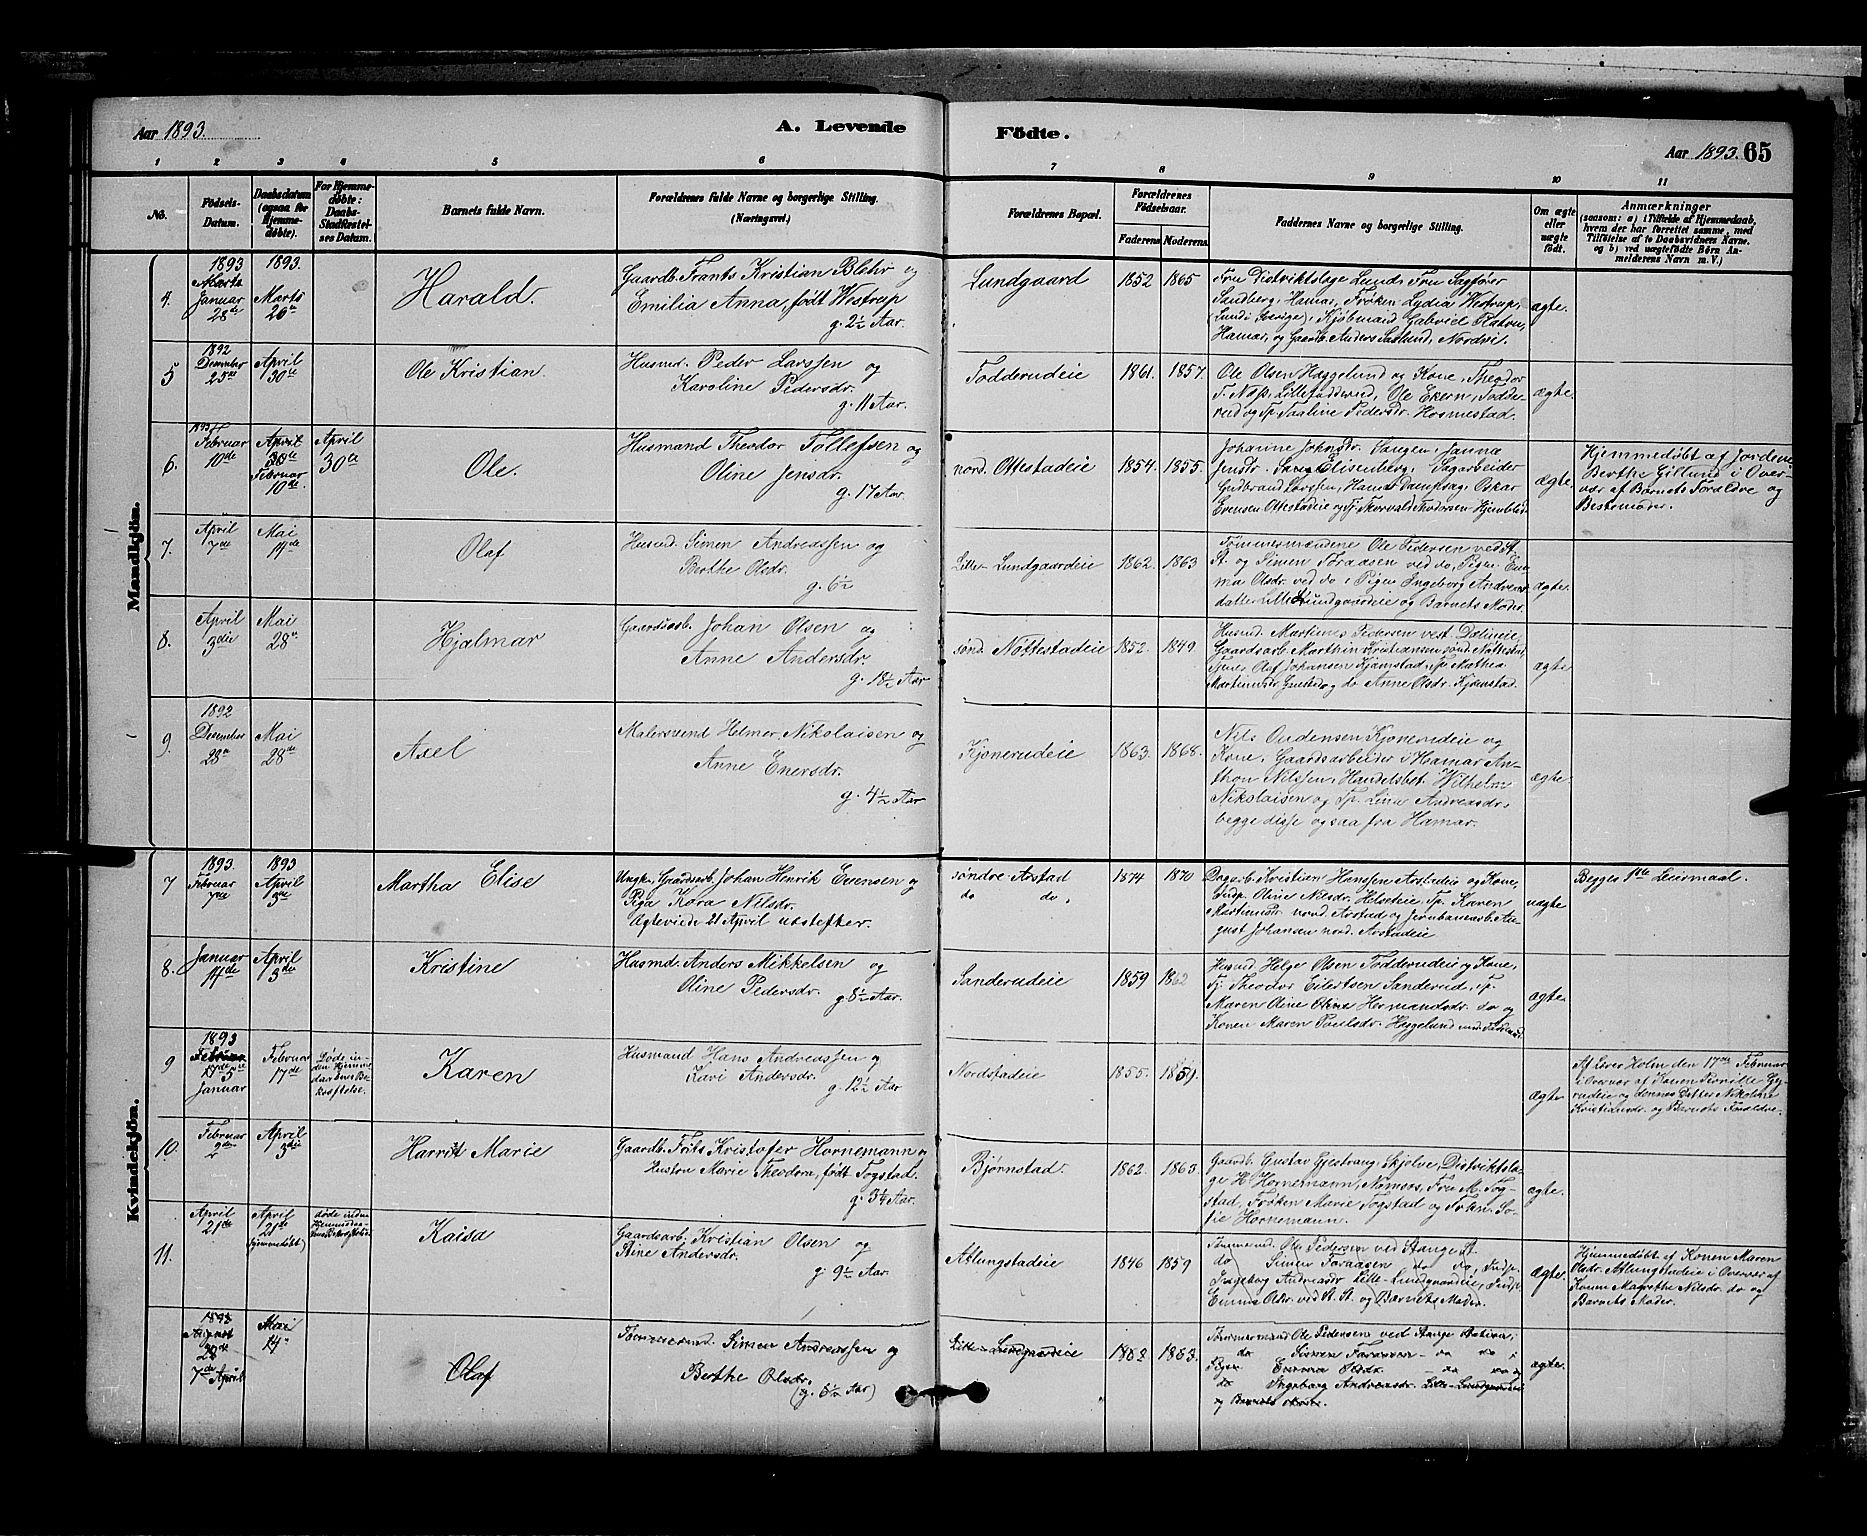 Aar 1893. A. Levende Födte. Aar 1893. 65
1 2 3 4 5 6 7 8 9 10 11
No.
Födsels-
Datum.
Daabsdatum
(ogsaa for
Hjemme-
døbte).
For Hjemme-
døbte:
Daabs-
Stadfæstel-
ses Datum.
Barnets fulde Navn.
Forældrenes fulde Navne og borgerlige Stilling.
(Næringsvei.)
Forældrenes Bopæl.
Forældrenes
Födselsaar.
Faderens Moderens
Faddernes Navne og borgerlige Stilling.
Om ægte
eller
uægte
födt.
Anmærkninger
(saasom: a) i Tilfælde af Hjemmedaab,
hvem der har forrettet samme, med
Tilföielse af to Daabsvidners Navne,
og b) ved uægtefödte Börn An-
melderens Navn m. V.)
Mandkjön.
4.
1893
Marts
Januar
28de
1893.
Marts
26de
Harald.
Gaardb. Frants Kristian Blehr og
Emilia Anna, født Westrup
g. 2½ Aar.
Lundgaard
1852 1865
Fru Distriktslæge Lund, Fru Sagfører
Sandberg, Hamar, Frøken Lydia Westrup,
(Lund i Sverige), Kjøbmand Gabriel
Hamar, og Gaardb. Anders Sælid, Nordvi.
ægte.
5
1892
Desember
25de
April
30te
Ole Kristian.
Husmd. Peder Larssen og
Karoline Pedersdr.
g. 11 Aar.
Fodderudeie
1861. 1857.
Ole Olsen Haggelund og Kone, Theodor
Lillefodderud, Ole Ekern, Fodde-
rud og Tp. Paaline Pedersdr. Hosmestad.
ægte.
6.
1893
Februar
10de
April
30te
Februar
10de
April
30te
Ole.
Husmand Theodor Tollefsen og
Oline Jensdr.
g. 17 Aar.
nord. Ottestadeie
1854. 1855.
Johanne Johnsdr. Sangen, Janna
Jensdr. Sang Elisenberg, Sagarbeider
Gudbrand Larssen, Hamar Dampsag, Oskar
Evensen Ottestadeie og Tj. Thorvald Theodorsen
ægte.
Hjemmedøbt af Jordem.
Berthe Gillund i Over-
vær af Barnets Forældre og
Bestemoder.
7.
April
7de
Mai
14de
Olaf
Husmd. Simen Andreassen og
Berthe Olsdr.
g. 6½
Lille-Lundgaardeie
1862. 1863
Tømmermændene Ole Pedersen ved St.
St. og Simen Foraasen ved do, Pigen Em-
ma Olsdr. ved do, Pigen Ingeborg Andreas-
datter Lille Lundgaardeie og Barnets Moder.
ægte
8.
April
3die
Mai
28de
Hjalmar
Gaardsarb. Johan Olsen og
Anne Andersdr.
g. 18½ Aar
sønd. Nøttestadeie
1852. 1849
Husmd. Martinus Pedersen vest. Dælineie,
Gaardsarb. Marthin Kristiansen sønd. Nøttestad,
Tjener Olaf Johansen Kjønstad, Tp. Mathea
Martinusdr. og do Anne Olsdr. Kjønstad.
ægte
9.
1892
Desember
28de
Mai
28de
Axel
Malersvend Helmer Nikolaisen og
Anne Enersdr.
g. 4½ Aar
Kjonerudeie
1863. 1868.
Nils Audensen Kjonerudeie og
Kone, Gaardsarbeider i Hamar An-
thon Nilssen, Handelsbet. Wilhelm
Nikolaisen og Tp. Lina Andreasdr.,
begge disse ogsaa fra Hamar.
ægte.
Kvindekjön.
7
1893
Februar
7de
1893
April
3die
Martha Elise
Ungk. Gaardsarb. Johan Henrik Evensen og
Pige Kora Nilsdr.
Ægteviede 21 April næstefter.
søndre Arstad
do do.
1874 1870
Dagarb. Kristian Hanssen Arstadeie og Kone,
Indsp. Oline Nilsdr. Helseteie, Tp. Karen
Martinusdr. nord. Arstad og Jernbanearb. Au-
gust Johansen nord. Arstadeie
uægte
Begges 1ste Leiermaal.
8.
Januar
14de
April
3die
Kristine
Husmd. Anders Mikkelsen og
Oline Pedersdr. g. 8½ Aar.
Sanderudeie
1859 1862
Husmd. Helge Olsen Fodderudeie og Kone,
Tj. Theodor Eilertsen Sanderud, Tp.
Maren Oline Hermandsdr. do og
Konen Maren Poulsdr. Haggelund
ægte.
9
1893
Februar
17de 5te
Januar
Februar
17de
Døde in-
den Hjemme-
daabens Be-
kræftelse.
Karen
Husmand Hans Andreassen og
Kari Andersdr.
g. 12½ Aar
Nordstadeie
1855. 1859.
ægte.
Af Lærer Holm den 17de Februar
i Overvær af Konen Pernille Gy-
rudeie og dennes Datter Nikoline
Kristiansdr. og Barnets Forældre.
10.
Februar
2den
April
3die
Harriet Marie
Gaardb. Frits Kristofer Hornemann og
Hustru Marie Theodora, født Fogstad.
g. 3¼ Aar.
Bjørnstad.
1862. 1863
Gaardb. Gustav Gjestvang, Skjelve, Distriktslæ-
ge H. Hornemann, Namsos, Fru M. Fog-
stad, Frøken Marie Fogstad og Frøken So-
fie Hornemann.
ægte.
11.
April
21de
April
21de
(hjemmedøbt)
døde inden
Hjemmedaa-
bens Bekræftelse.
Kaisa
Gaardsarb. Kristian Olsen og
Stine Andersdr.
g. 9½ Aar.
Atlungstadeie
1846 1859
Tømmermd. Ole Pedersen ved Stange St.
do Simen Foraasen do do, Indsp.
Ingeborg Andreasdr. Lille-Lundgaardeie, Indsp.
Emma Olsdr. ved St. St. og Barnets Moder.
ægte.
Hjemmedøbt af Konen Maren
Olsdr. Atlungstadeie i Overvær af
Konen Magrethe Nilsdr. do og
Barnets Moder.
1893
August
22de
7de April
Mai
14de
Olaf
Tømmermd. Simen Andreassen og
Berthe Olsdr.
(g. 6½ Aar)
Lille-Lundgaardeie
1862 1863.
Tømmermand Ole Pedersen ved Stange Station,
do Simen Foraasen do do,
Pigen Emma Olsdr. do do
do Ingeborg Andreasdr. Lille-Lundgaardeie
og Barnets Moder.
ægte.